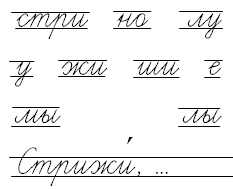 стри но лу
у жи ши е
мы лы
Стрижи, ...